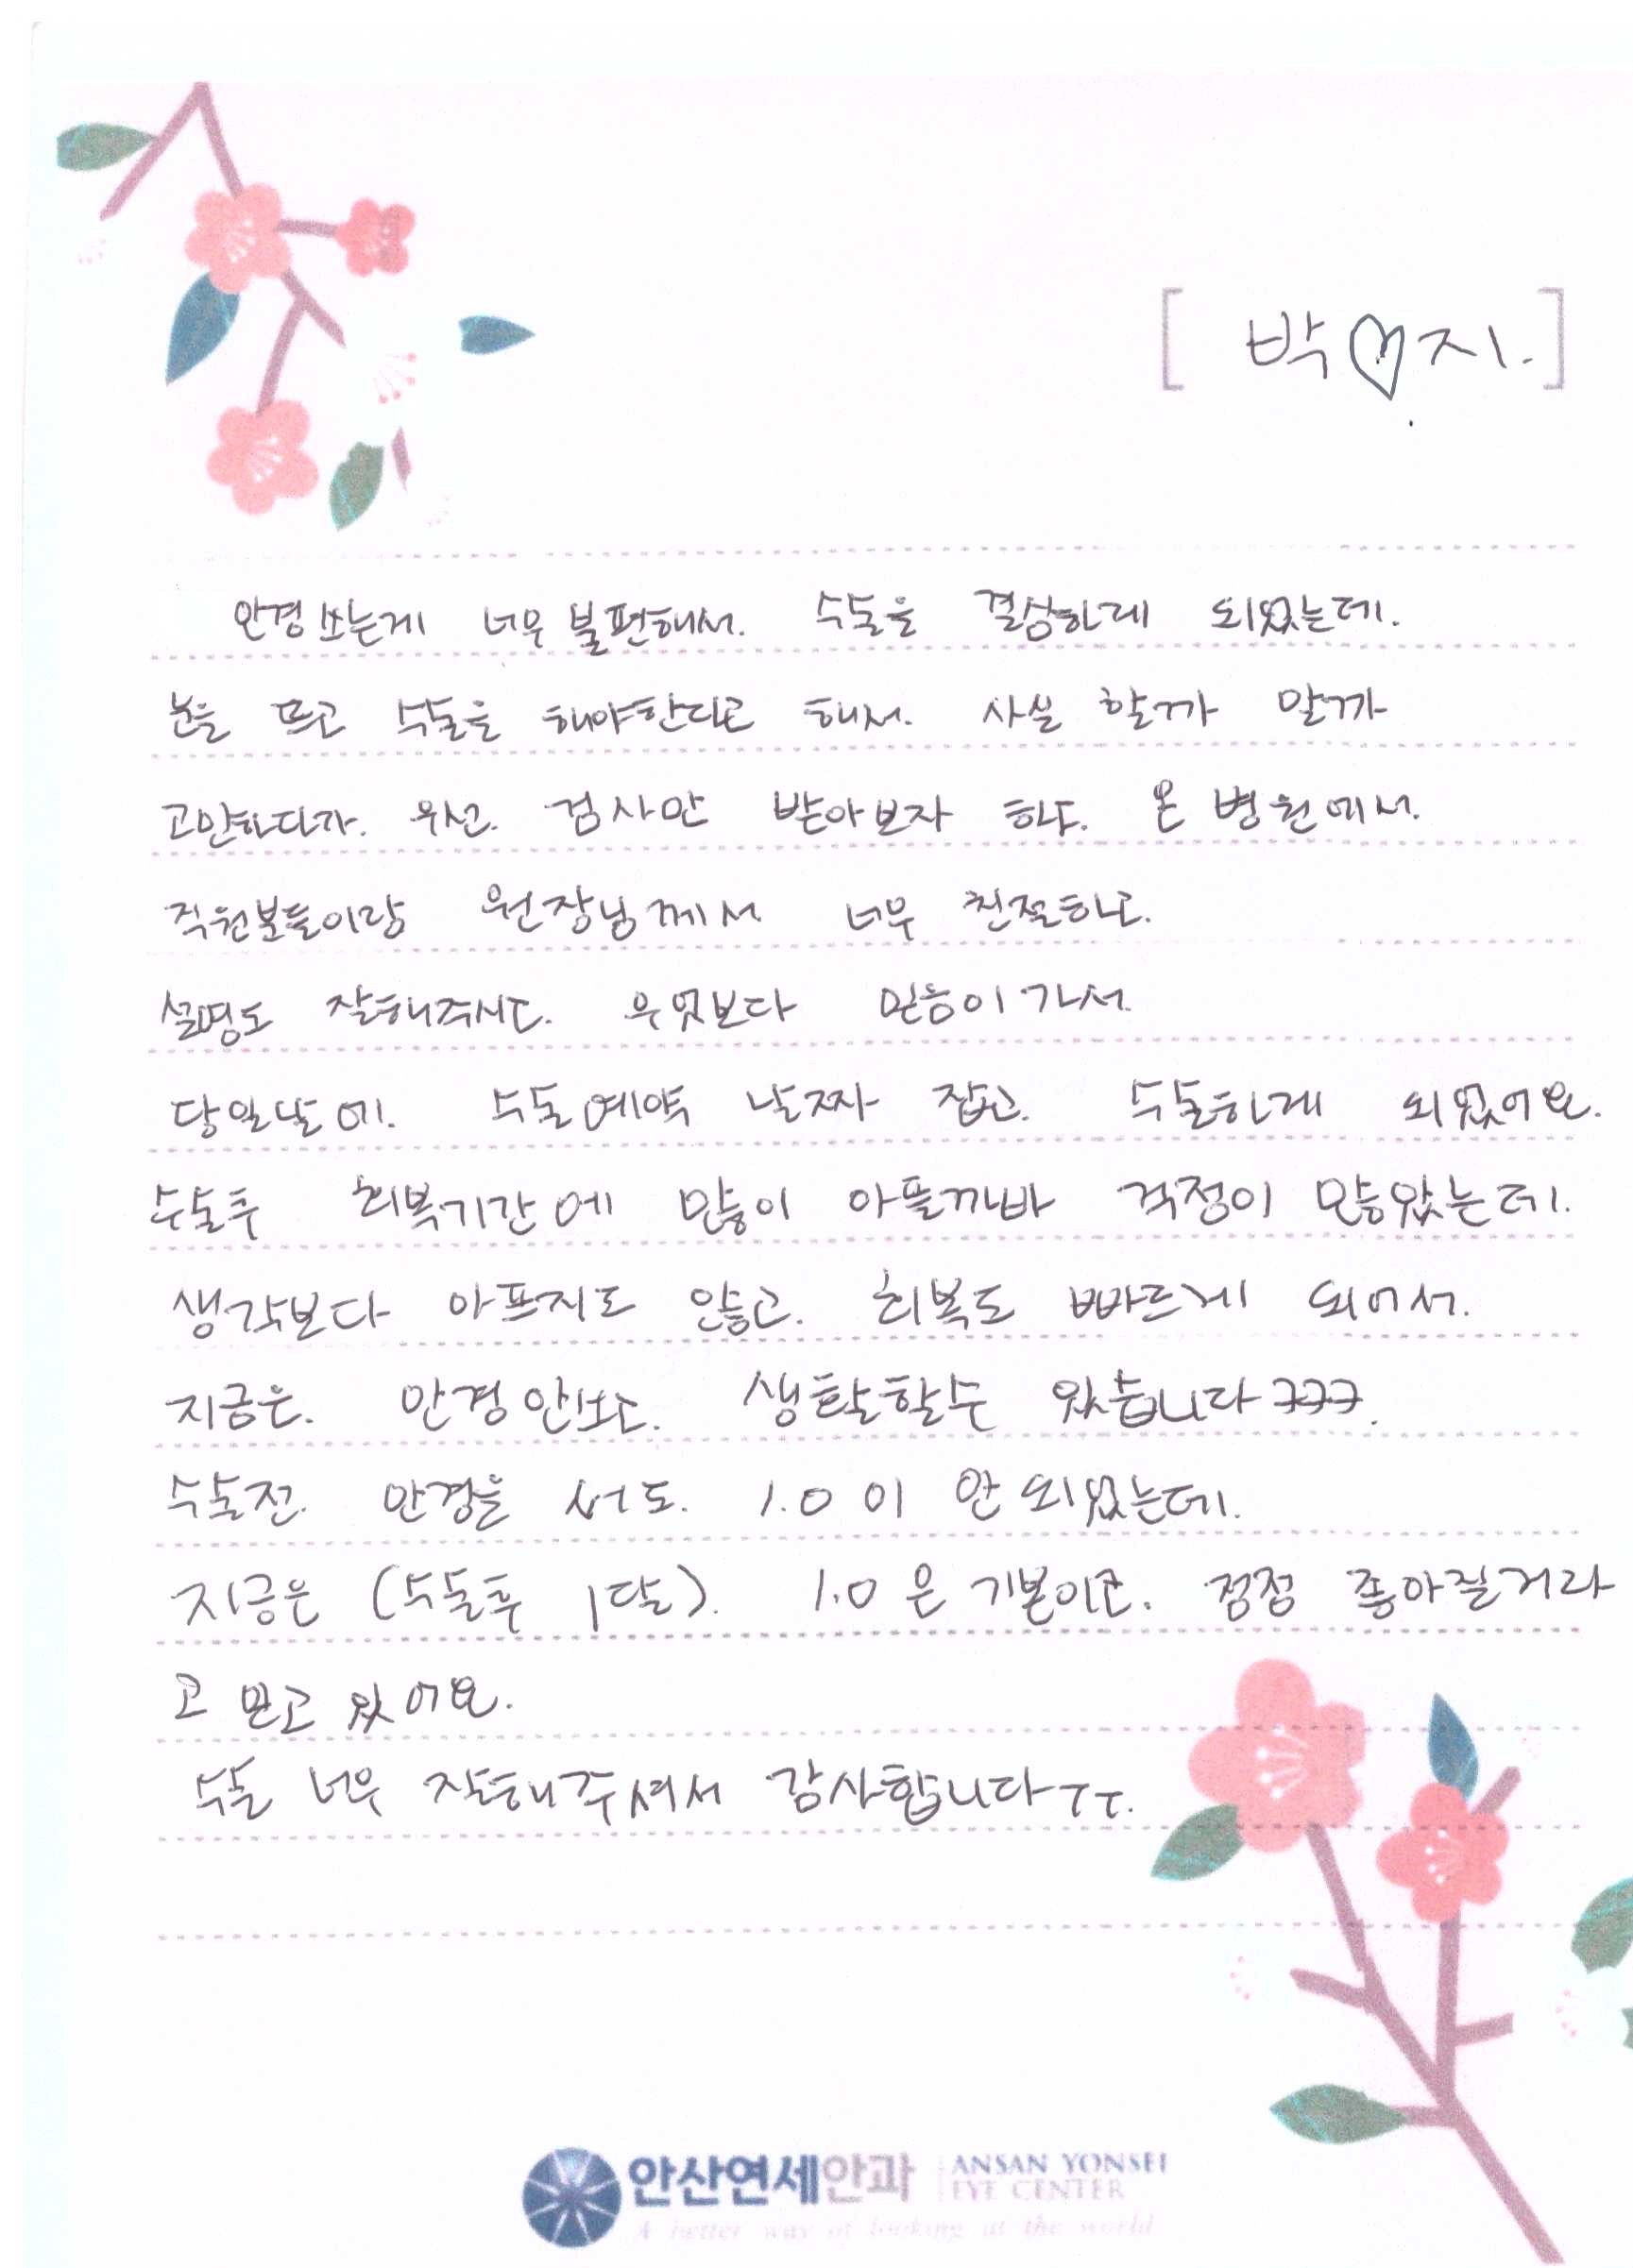 [ 박♡지. ]
안경쓰는게 너무 불편해서. 수술을 결심하게 되었는데.
눈을 뜨고 수술을 해야한다고 해서. 사실 할까 말까
고민하다가. 우선. 검사만 받아보자 하고. 온 병원에서.
직원분들이랑 원장님께서 너무 친절하고.
설명도 잘해주시고. 무엇보다 믿음이가서
당일날에. 수술예약 날짜 잡고. 수술하게 되었어요.
수술후 회복기간에 많이 아플까바 걱정이 많았는데.
생각보다 아프지도 않고. 회복도 빠르게 되어서.
지금은. 안경안쓰고. 생활할수 있습니다ㅋㅋㅋ.
수술전. 안경을 써도. 1.0이 안되었는데.
지금은 (수술후 1달). 1.0은 기본이고. 점점 좋아질거라
고 믿고 있어요.
수술 너무 잘해주셔서 감사합니다ㅜㅜ.
안산연세안과 ANSAN YONSEI
EYE CENTER
A better way of looking at the world